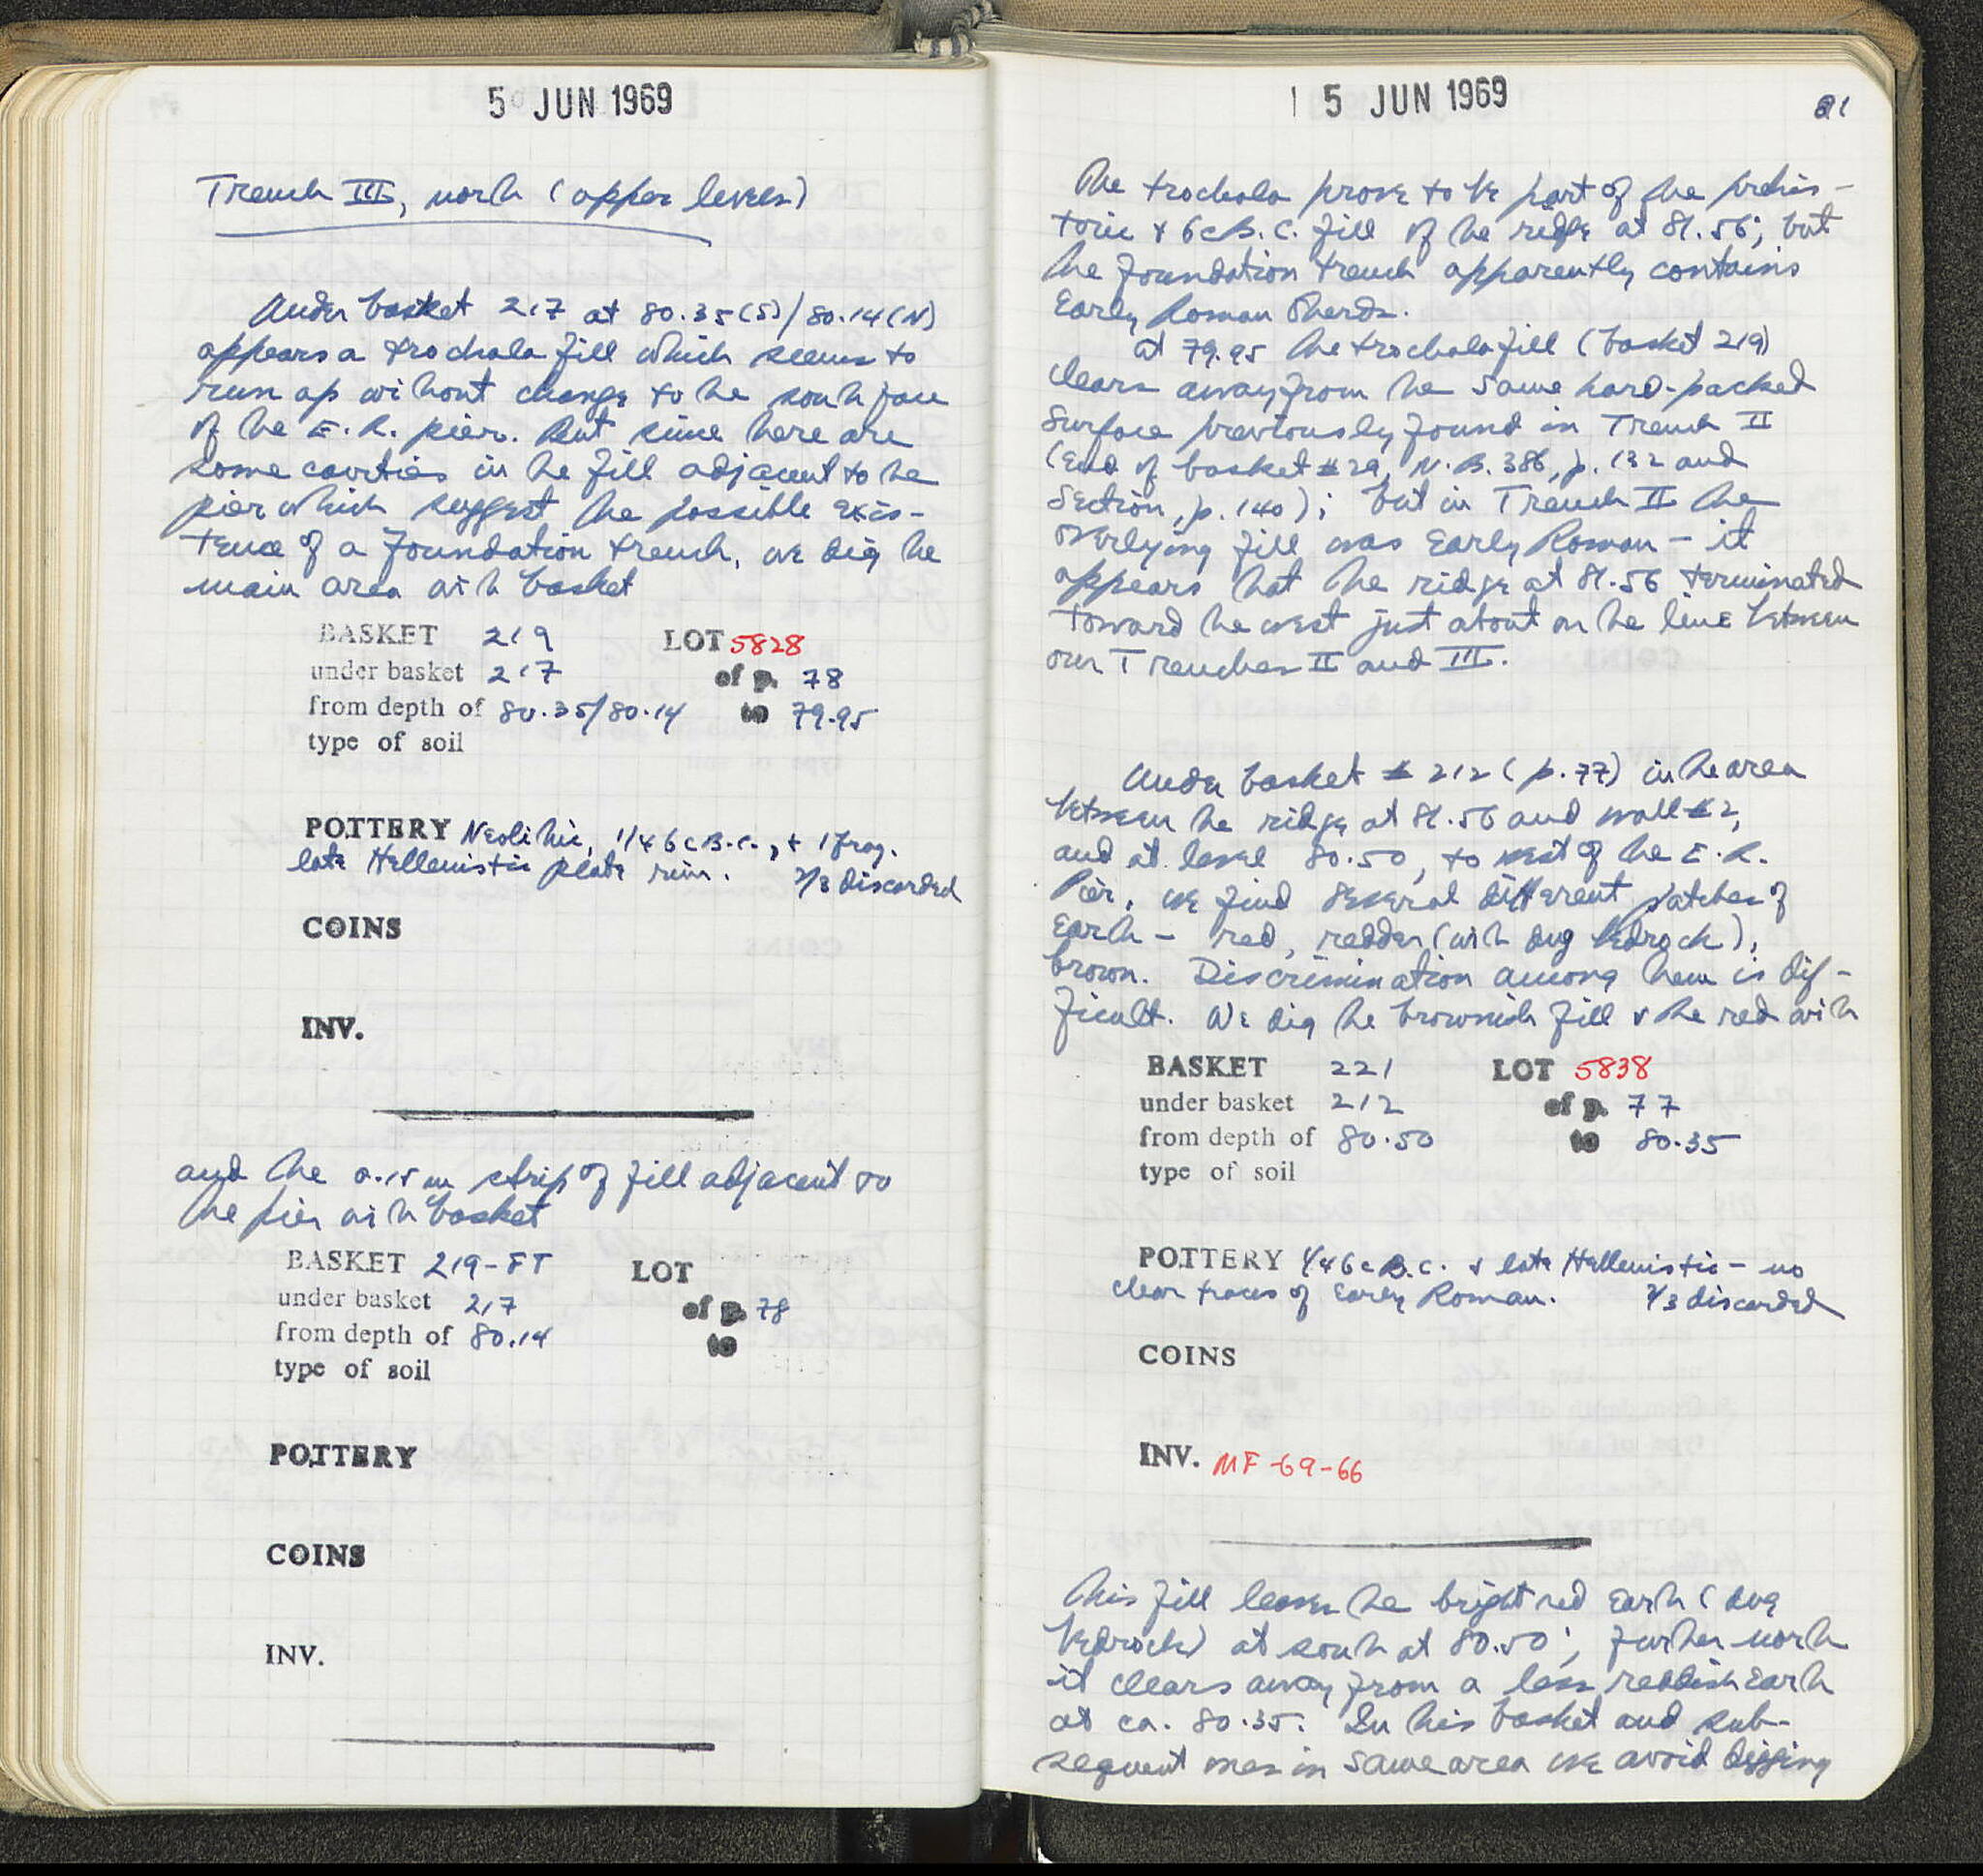 5 JUN 1969
Trench III, north (upper levels)
Under basket 217 at 80.35(S)/80.14(N)
appears a trochala fill which seems to
run up without change to the south face
of the E.R. pier. But since there are
some cavities in the fill adjacent to the
pier which suggest the possible exis-
tence of a foundation trench, we dig the
main area with basket
BASKET 219 LOT 5828
under basket 217 of p. 78
from depth of 80.35/80.14 to 79.95
type of soil
POTTERY Neolithic, 1/4 6 c B.C., + 1 frag.
late Hellenistic plate rim. 2/3 discarded
COINS
INV.
and the 0.15 m strip of fill adjacent to
the pier with basket
BASKET 219-FT LOT
under basket 217 of p. 78
from depth of 80.14 to
type of soil
POTTERY
COINS
INV.
15 JUN 1969 81
The trochala prove to be part of the prehis-
toric + 6 c B.C. fill of the ridge at 81.56; but
the foundation trench apparently contains
Early Roman sherds.
at 79.95 the trochala fill (basket 219)
clears away from the same hard-packed
surface previously found in Trench II
(end of basket #29, N.B. 386, p. 132 and
section, p. 140); but in Trench II the
overlying fill was Early Roman - it
appears that the ridge at 81.56 terminated
toward the west just about on the line between
our Trenches II and III.
Under basket # 212 (p. 77) in the area
between the ridge at 81.56 and wall #2,
and at level 80.50, to west of the E.R.
Pier, we find several different patches of
earth - red, redder (with dug bedrock),
brown. Discrimination among them is dif-
ficult. We dig the brownish fill + the red with
BASKET 221 LOT 5838
under basket 212 of p. 77
from depth of 80.50 to 80.35
type of soil
POTTERY 1/4 6 c B.C. + late Hellenistic - no
clear traces of Early Roman. 2/3 discarded
COINS
INV. MF-69-66
This fill leaves the bright red earth (dug
bedrock) at south at 80.50; further north
it clears away from a less reddish earth
at ca. 80.35. In this basket and sub-
sequent ones in same area we avoid digging